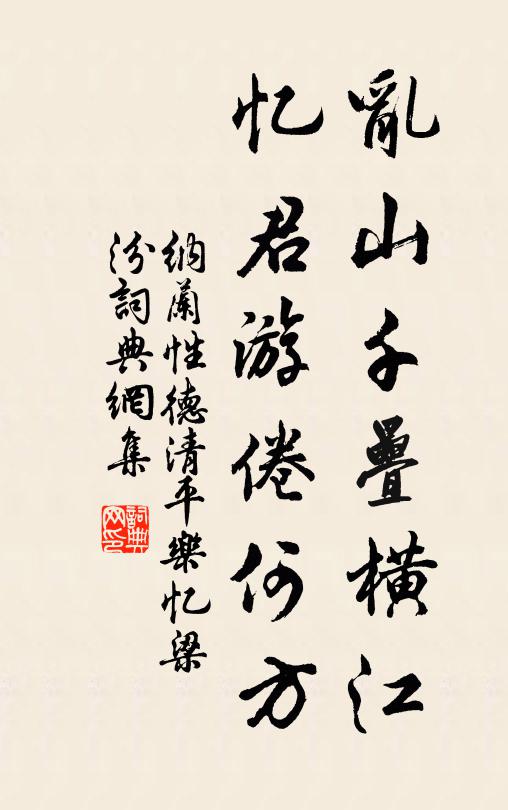 亂山千疊橫江
忆君游倦何方
纳蘭性德清平樂忆梁
汾詞典網集
詞典網印